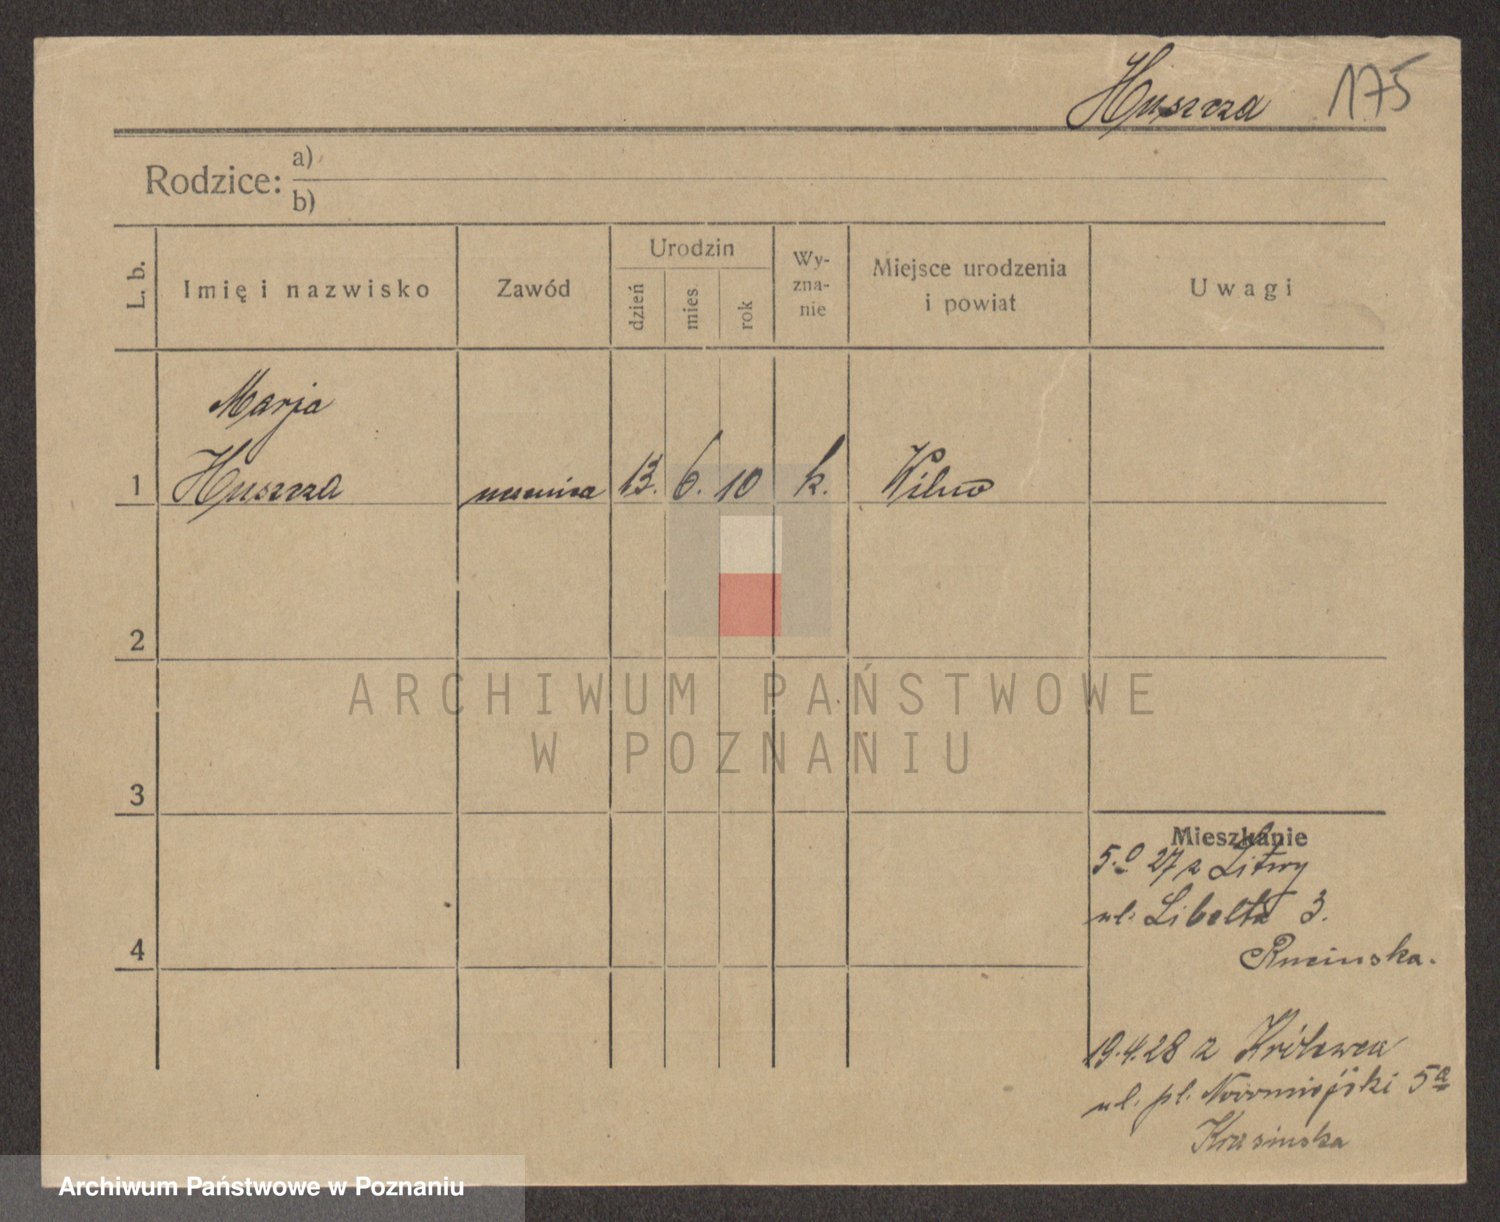 Huszcza 175
Rodzice: a)
b)
L. b.
Imię i nazwisko
Zawód
Urodzin
dzień
mies
rok
Wy-
zna-
nie
Miejsce urodzenia
i powiat
Uwagi
Marja
1 Huszcza uczenica 13. 6. 10 k. Wilno
2
3
4
Mieszkanie
27 z Litwy
ul. Libelta 3.
Rucinska.
19.4.28 z Królewca
ul. pl. Nowomiejski 5a
Krasinska
ARCHIWUM PAŃSTWOWE
W POZNANIU
Archiwum Państwowe w Poznaniu